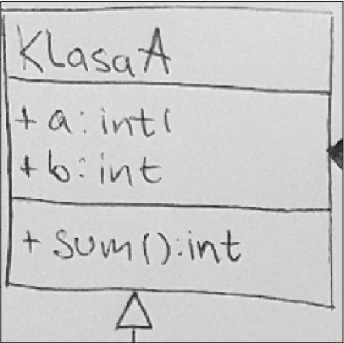 KlasaA
+ a: int(
+ b: int
+ sum():int